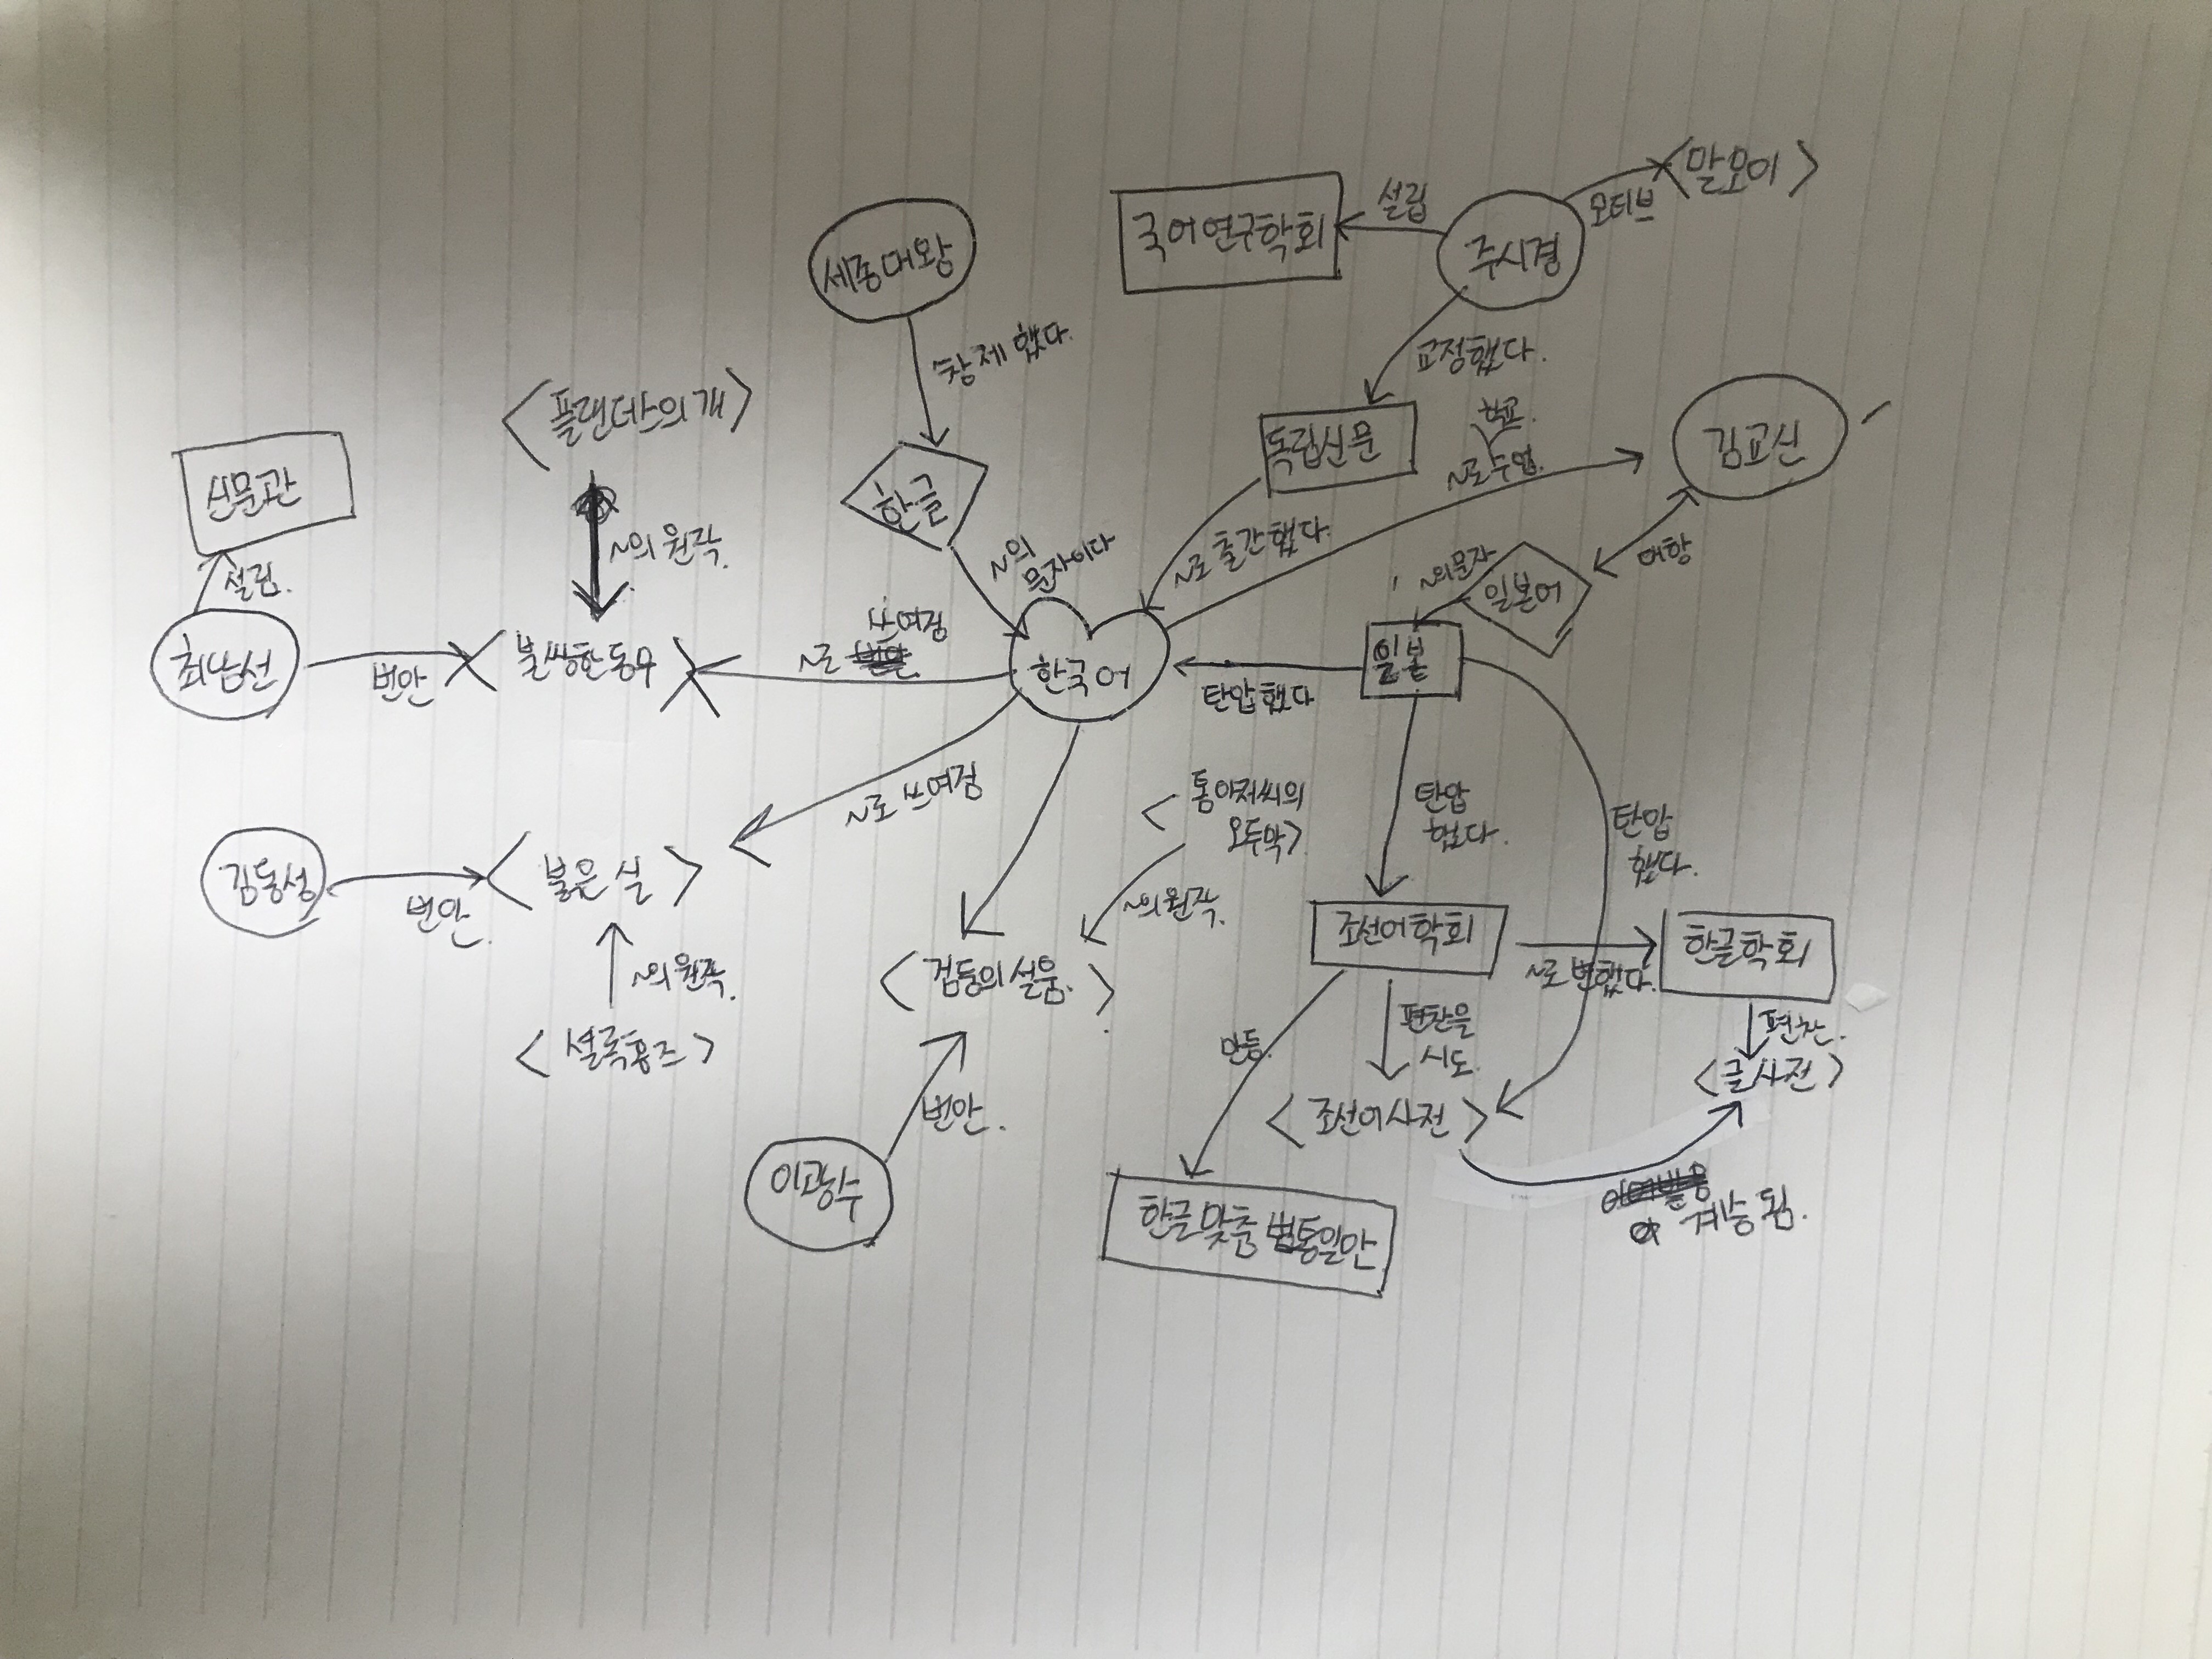 <말모이>
설립
모티브
국어연구학회
주시경
세종대왕
창제했다.
교정했다.
<플랜더스의 개>
학교.
독립신문
~로 수업.
김교신
신문관
한글
~의 원작.
~의
문자이다
~로 출간했다.
~의 문자
일본어
저항
설립.
최남선
번안
불쌍한 동무
쓰여짐
~로
한국어
일본
탄압했다
~로 쓰여짐
<톰아저씨의
오두막>
탄압
했다.
탄압
했다.
김동성
번안.
<붉은 실>
~의 원작.
~의 원작.
<셜록홈즈>
<검둥의 설움.>
조선어학회
~로 변했다.
한글학회
만듬.
편찬을
시도.
편찬.
<글사전>
<조선어사전>
번안.
이광수
한글맞춤법통일안
계승됨.